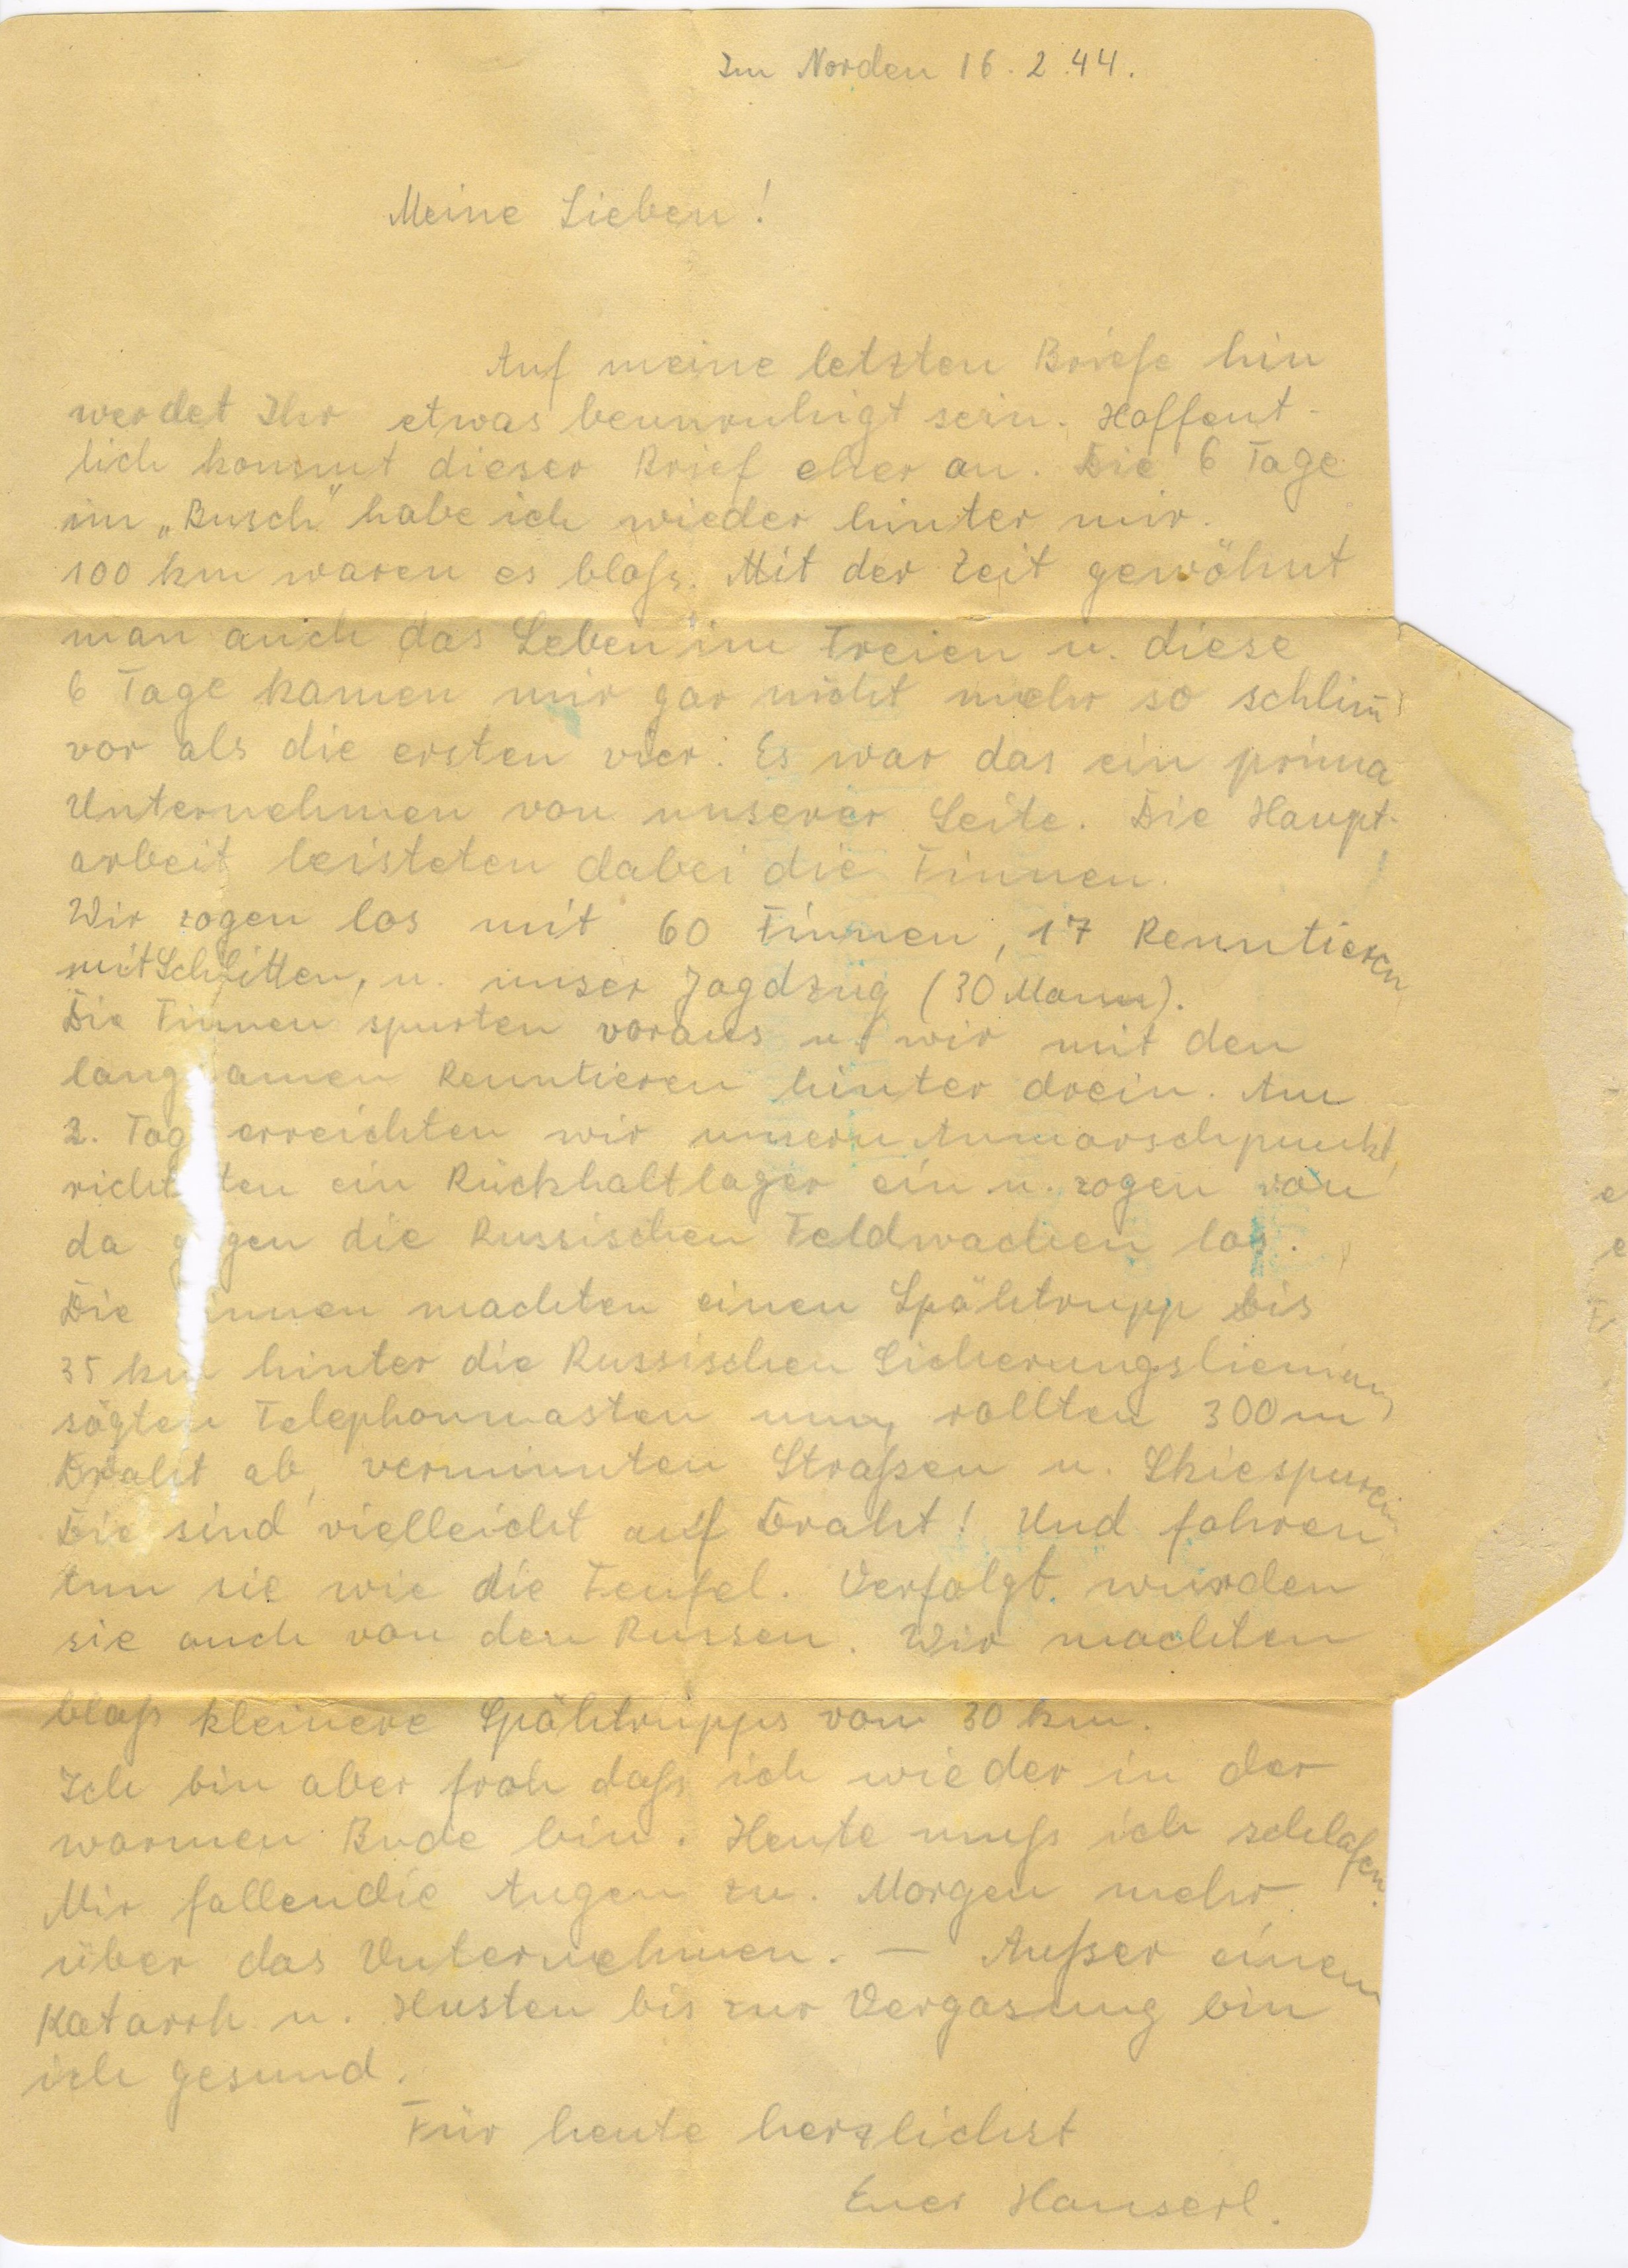 Im Norden 16.2.44.
Meine Lieben!
Auf meine letzten Briefe hin
werdet Ihr etwas beunruhigt sein. Hoffent-
lich kommt dieser Brief eher an. Die 6 Tage
im „Busch" habe ich wieder hinter mir.
100 km waren es bloß. Mit der Zeit gewöhnt
man auch das Leben im Freien u. diese
6 Tage kamen mir gar nicht mehr so schlim̅
vor als die ersten vier. Es war das ein prima
Unternehmen von unserer Seite. Die Haupt-
arbeit leisteten dabei die Finnen.
Wir zogen los mit 60 Finnen, 17 Renntieren
mit Schlitten, u. unser Jagdzug (30 Mann).
Die Finnen spurten voraus u. wir mit den
lang amen Renntieren hinter drein. Am
2. Tag erreichten wir unsern Anmarschpunkt,
richt ten ein Rückhaltlager ein u. zogen von
da g gen die Russischen Feldwachen los.
Die innen machten einen Spähtrupp bis
35 km hinter die Russischen Sicherungslienien,
sägten Telephonmasten um, rollten 300 m
Draht ab, verminnten Straßen u. Skiespuren
Die sind vielleicht auf Draht! Und fahren
tun sie wie die Teufel. Verfolgt wurden
sie auch von den Russen. Wir machten
bloß kleinere Spähtrupps von 30 km.
Ich bin aber froh daß ich wieder in der
warmen Bude bin. Heute muß ich schlafen.
Mir fallen die Augen zu. Morgen mehr
über das Unternehmen. — Außer einem
Katarrh u. Husten bis zur Vergasung bin
ich gesund.
Für heute herzlichst
Euer Hanserl.